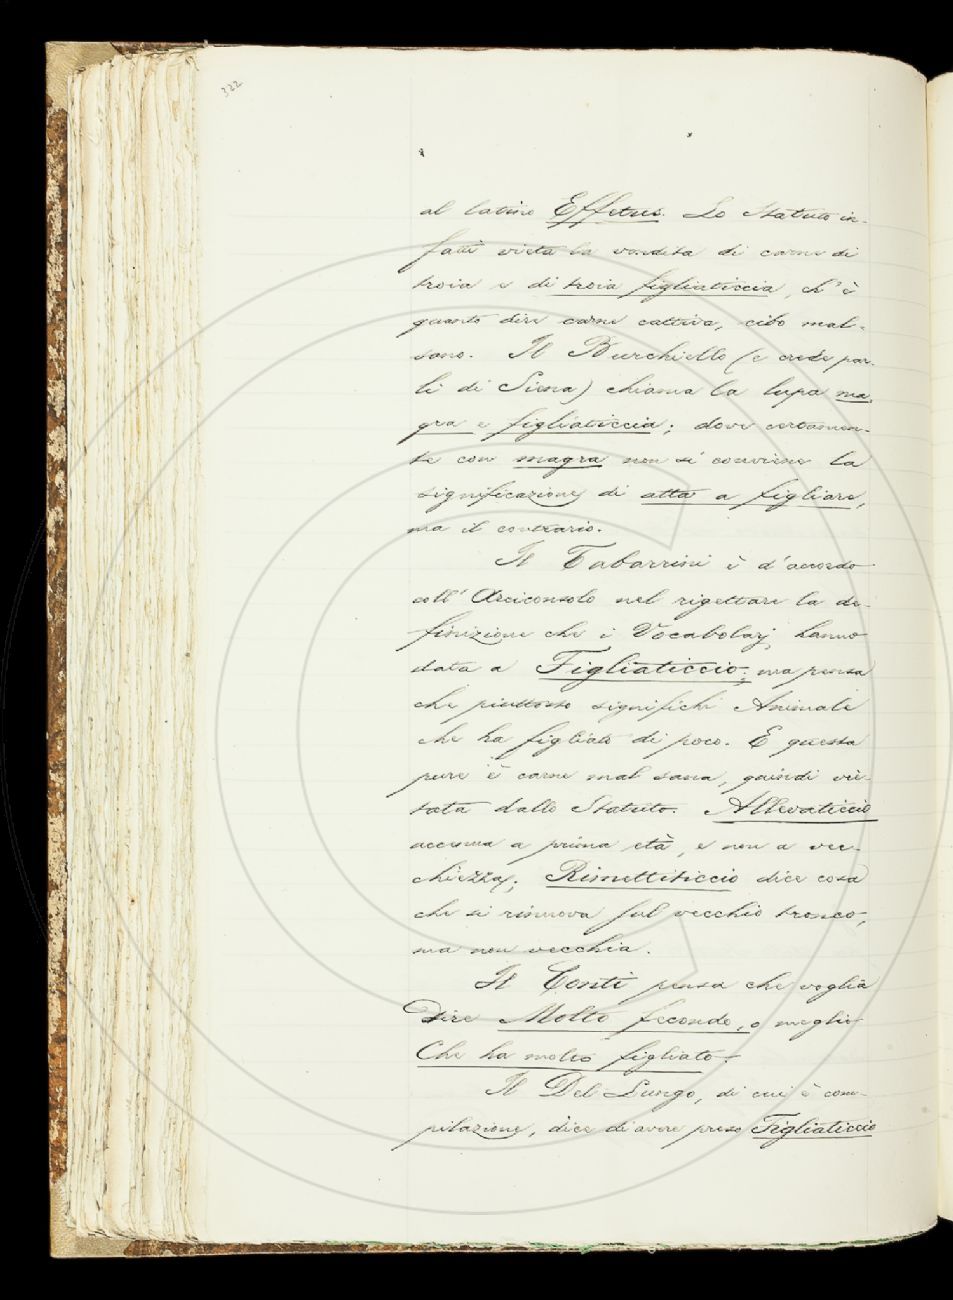 322
al latino Effetus. Lo Statuto in-
fatti vieta la vendita di carne di
troia e di troia figliaticcia, ch'è
quanto dire carne cattiva, cibo mal-
sano. Il Burchiello (e crede par-
li di Siena) chiama la lupa ma-
gra e figliaticcia; dove certamen-
te con magra non si conviene la
significazione di atta a figliare,
ma il contrario.
Il Tabarrini è d'accordo
coll'Arciconsolo nel rigettare la de-
finizione che i Vocabolarj hanno
data a Figliaticcio; ma pensa
che piuttosto significhi Animale
che ha figliato di poco. E questa
pure è carne mal sana, quindi vie-
tata dallo Statuto. Allevaticcio
accenna a prima età, e non a vec-
chiezza; Rimettiticcio dice cosa
che si rinnova sul vecchio tronco,
ma non vecchia.
Il Conti pensa che voglia
dire Molto fecondo, o meglio
Che ha molto figliato.
Il Del Lungo, di cui è com-
pilazione, dice di avere preso Figliaticcio